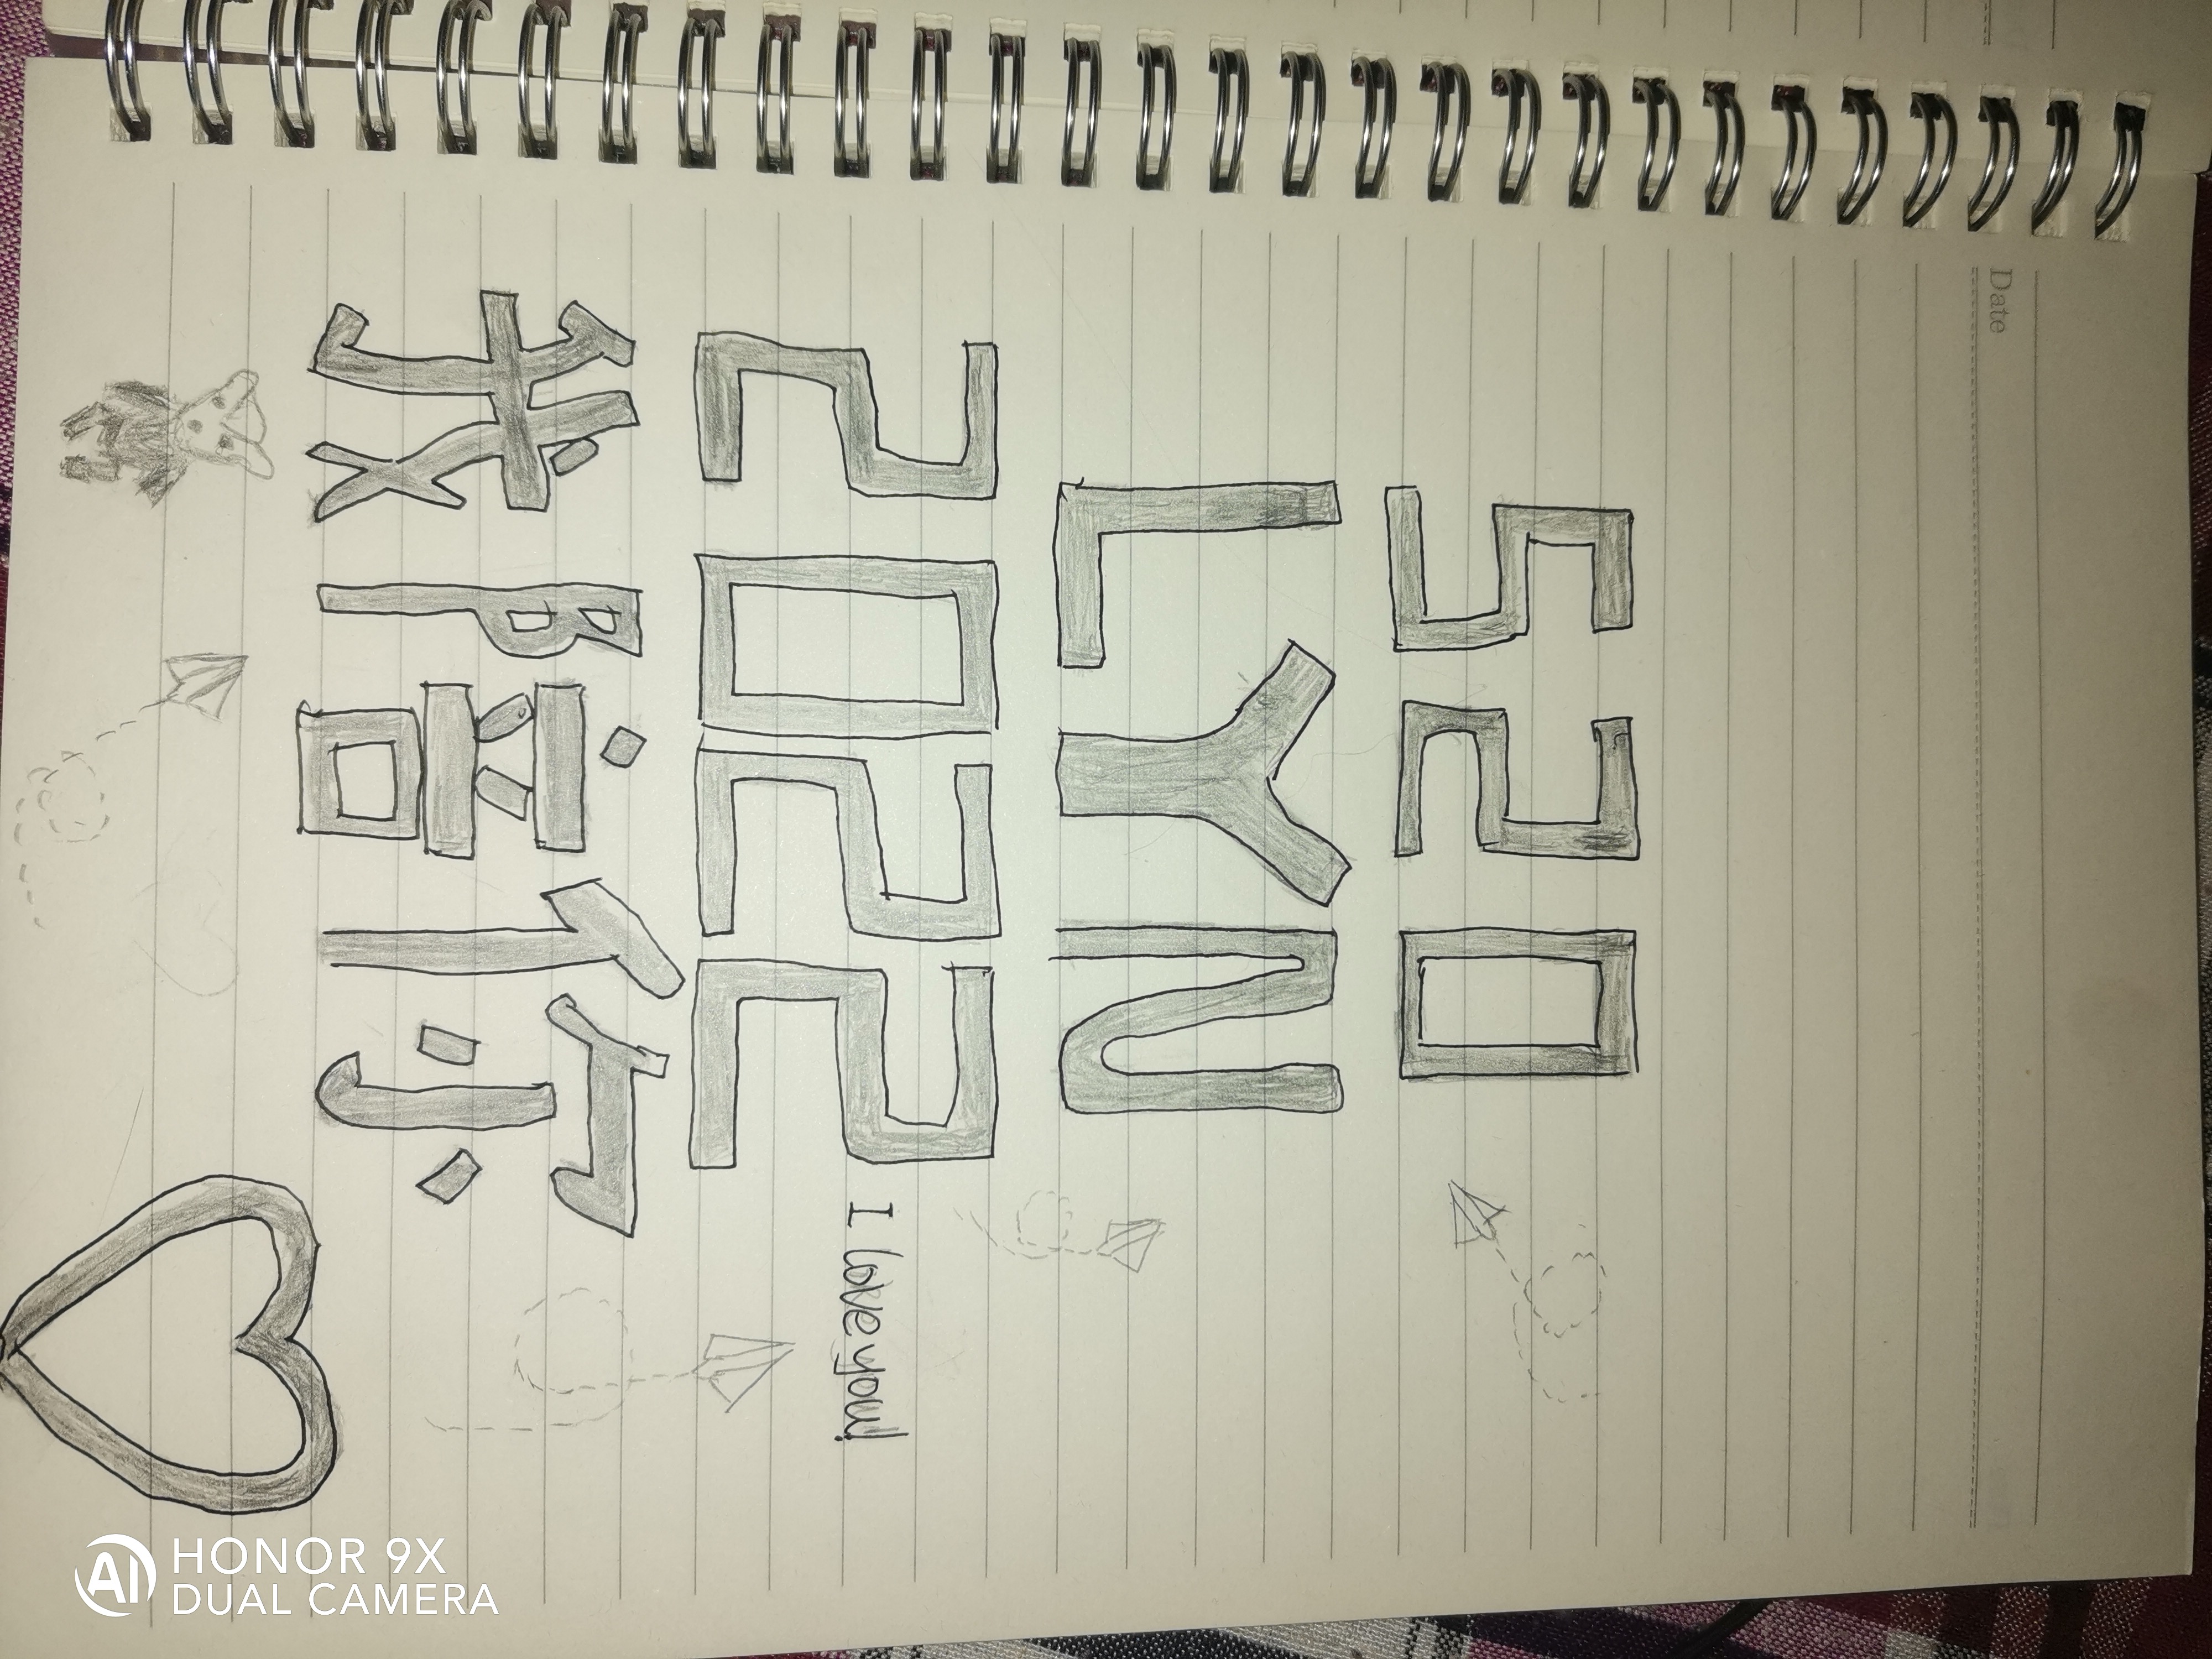 Date
520
LYN
2022 I love you!
我陪你
AI HONOR 9X
DUAL CAMERA